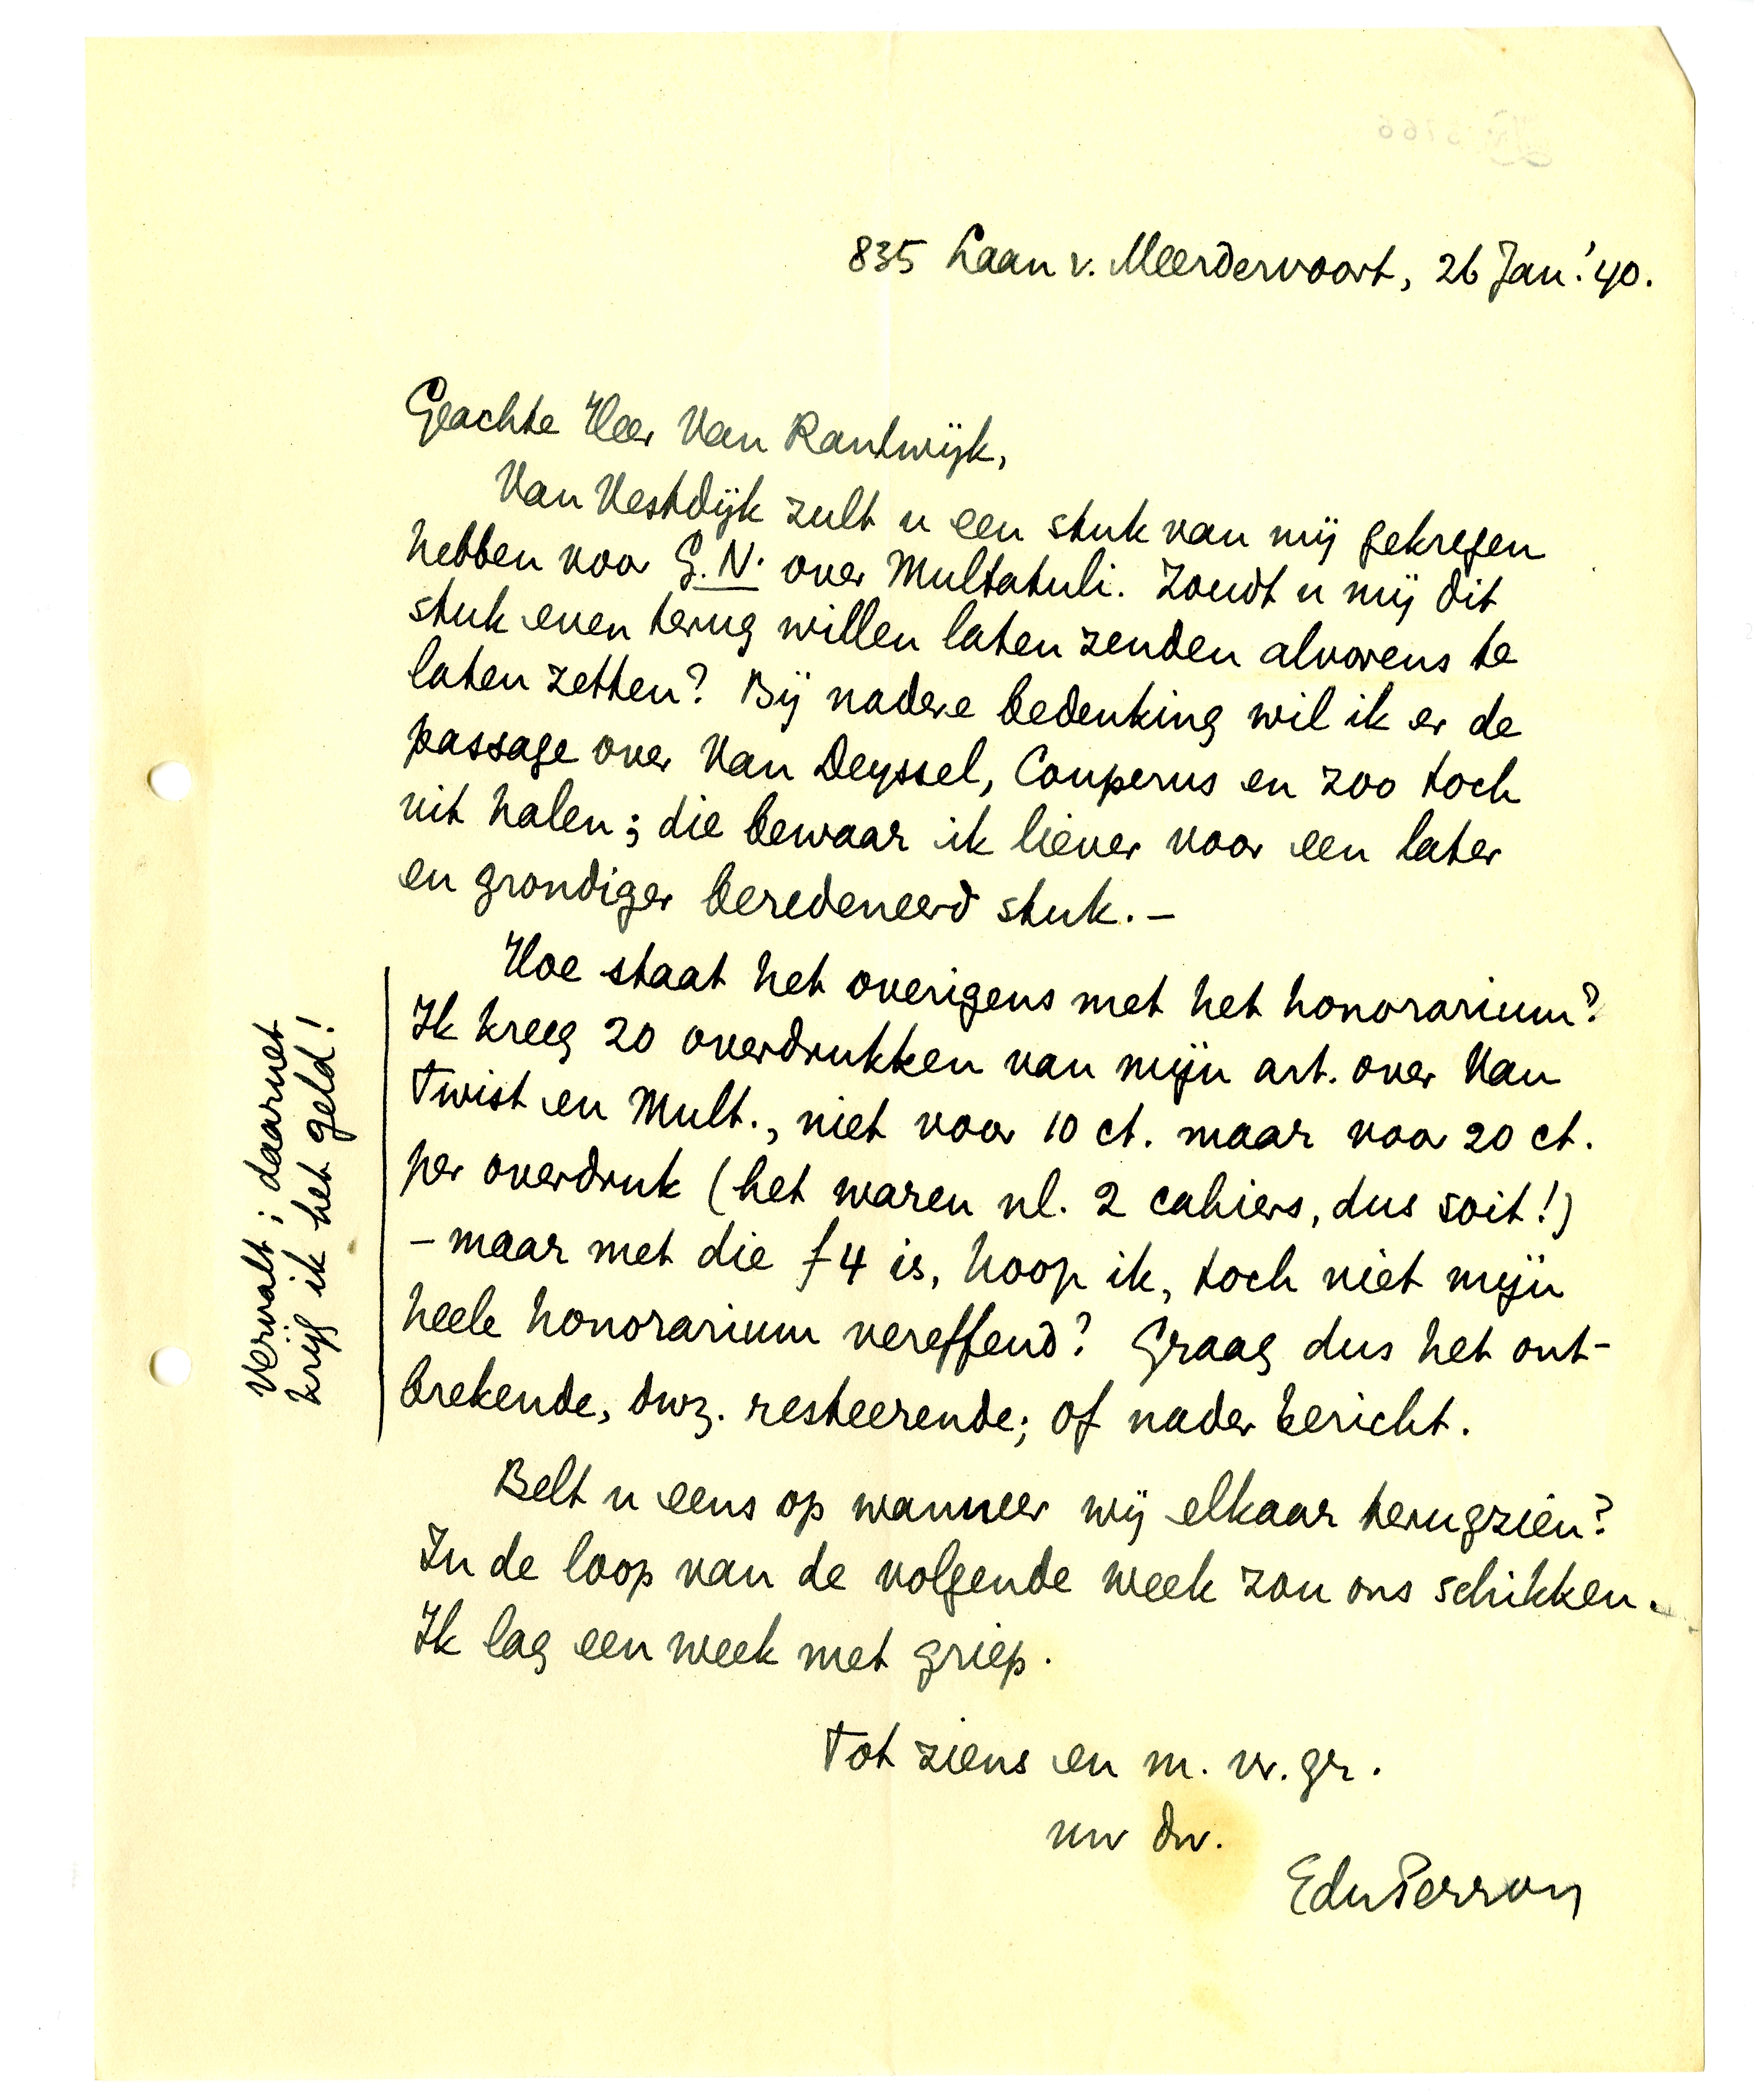 835 Laan v. Meerdervoort, 26 Jan. '40.
Geachte Heer Van Rantwijk,
Van Vestdijk zult u een stuk van mij gekregen
hebben voor G.N. over Multatuli. Zoudt u mij dit
stuk even terug willen laten zenden alvorens te
laten zetten? Bij nadere bedenking wil ik er de
passage over Van Deyssel, Couperus en zoo toch
uit halen; die bewaar ik liever voor een later
en grondiger beredeneerd stuk. –
Hoe staat het overigens met het honorarium?
Ik kreeg 20 overdrukken van mijn art. over Van
Twist en Mult., niet voor 10 ct. maar voor 20 ct.
per overdruk (het waren nl. 2 cahiers, dus soit!)
– maar met die f 4 is, hoop ik, toch niet mijn
heele honorarium vereffend? Graag dus het ont-
brekende, dwz. resteerende; of nader bericht.
Vervalt; daarnet
krijg ik het geld!
Belt u eens op wanneer wij elkaar terugzien?
In de loop van de volgende week zou ons schikken.
Ik lag een week met griep.
Tot ziens en m. vr. gr.
uw dw.
EduPerron